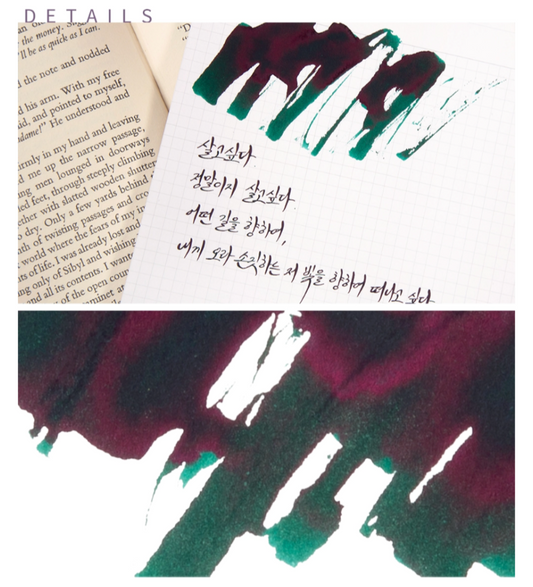 DETAILS
the money. Sh
'll be as quick as I can.
"D
d the note and nodded
d his arm. With my free
id, and pointed to myself,
dame!" He understood and
rmly in my hand and leaving
d me up the narrow passage,
ng men lounged in doorways
ed feet, through steeply climbing
ether with slatted wooden shutter
o dry. Only a few yards behind
th of twisting passages and cro
world where the fears of my
ts of life. I was already lost and
ng only of Sibyl and wishing
and all its contents. I want
of the open coun
살고싶다
정말이지 살고싶다.
어떤 길을 향하여,
내게 오라 손짓하는 저 빛을 향하여 떠나고 싶다